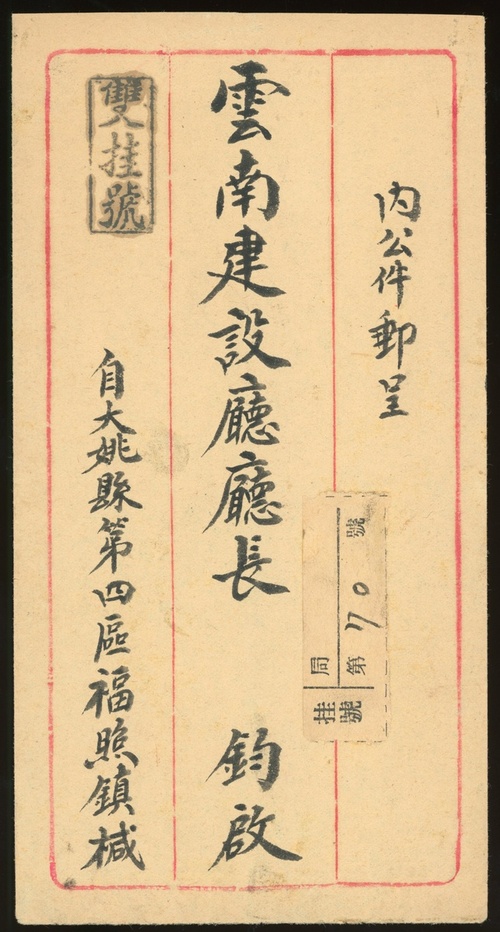 內公件郵呈
雲南建設廳廳長 鈞啟
雙挂號
自大姚縣第四區福照鎮椷
挂號
局
第70號